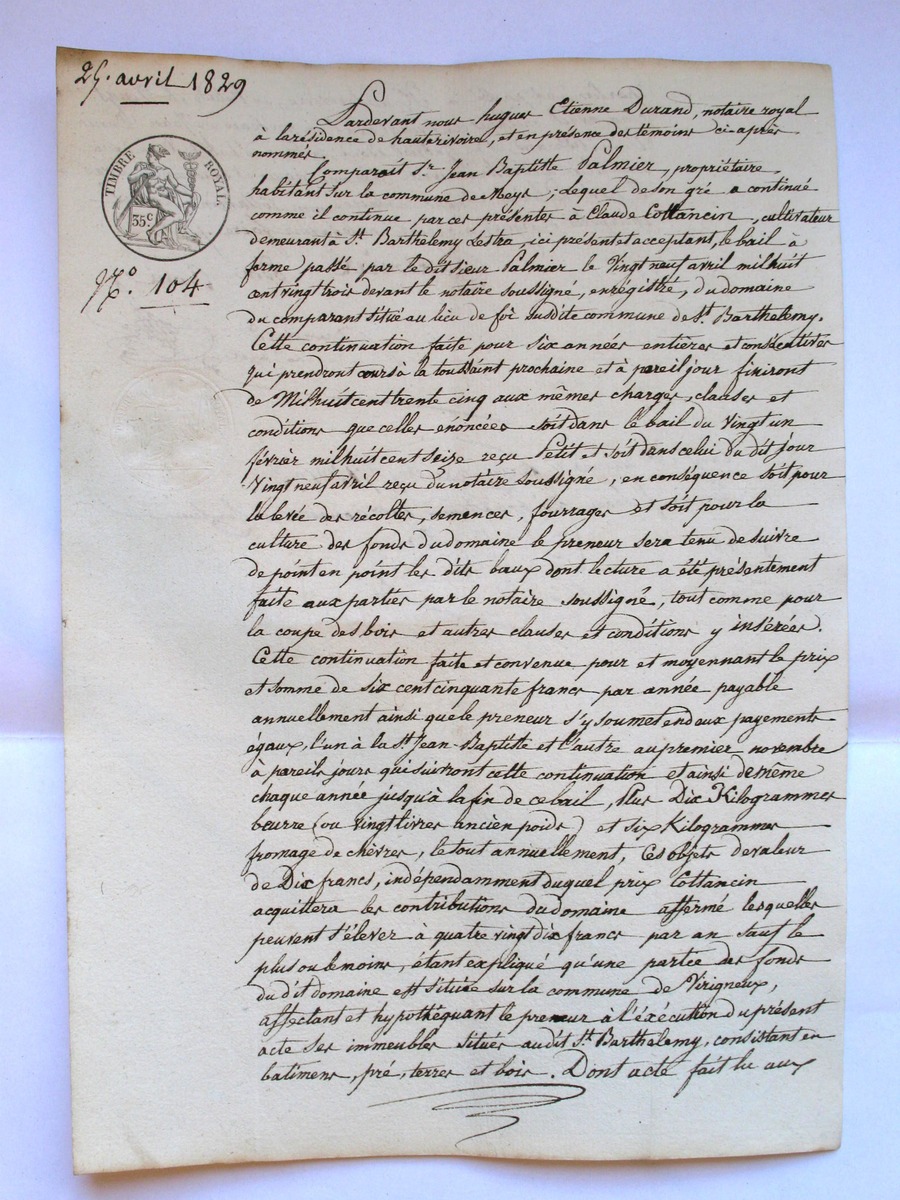 25. avril 1829
TIMBRE ROYAL.
35 c
N.º 104
Pardevant nous hugues Etienne Durand, notaire royal
à la résidence de hauterivoire, et en présence des témoins ci-après
nommés.
Comparait Sr. Jean Baptiste Palmier, propriétaire
habitant sur la commune de Meys, Lequel de son gré a continué
comme il continue par ces présentes à Claude Cottancin, cultivateur
demeurant à St. Barthelemy Lestra, ici présent et acceptant, le bail à
ferme passé par le dit sieur Palmier le Vingt neuf avril mil huit
cent vingt trois devant le notaire soussigné, enregistré, du domaine
du comparant situé au lieu de foi susdite commune de St. Barthelemy.
Cette continuation faite pour six années entières et consécutives
qui prendront cours à la toussaint prochaine et à pareil jour finiront
de Mil huit cent trente cinq aux mêmes charges, clauses et
conditions que celles énoncées soit dans le bail du Vingt un
février mil huit cent seize reçu Petit et soit dans celui du dit jour
Vingt neuf avril reçu du notaire soussigné, en conséquence soit pour
la levée des récoltes, semences, fourrages et soit pour la
culture des fonds du domaine le preneur sera tenu de suivre
de point en point les dits baux dont lecture a été présentement
faite aux parties par le notaire soussigné, tout comme pour
la coupe des bois et autres clauses et conditions y insérées.
Cette continuation faite et convenue pour et moyennant le prix
et somme de six cent cinquante francs par année payable
annuellement ainsi que le preneur s'y soumet en deux payements
égaux, l'un à la St. Jean-Baptiste et l'autre au premier novembre
à pareils jours qui suivront cette continuation et ainsi de même
chaque année jusqu'à la fin de ce bail, Plus Dix Kilogrammes
beurre (ou vingt livres ancien poids) et six Kilogrammes
fromage de chèvres, le tout annuellement, Ces objets de valeur
de Dix francs, indépendamment duquel prix Cottancin
acquittera les contributions du domaine affermé lesquelles
peuvent s'élever à quatre vingt dix francs par an sauf le
plus ou le moins, étant expliqué qu'une partie des fonds
du dit domaine est située sur la commune de Virigneux,
affectant et hypothéquant le preneur à l'éxécution du présent
acte ses immeubles situés au dit St. Barthelemy, consistant en
batimens, pré, terres et bois. Dont acte fait lu aux